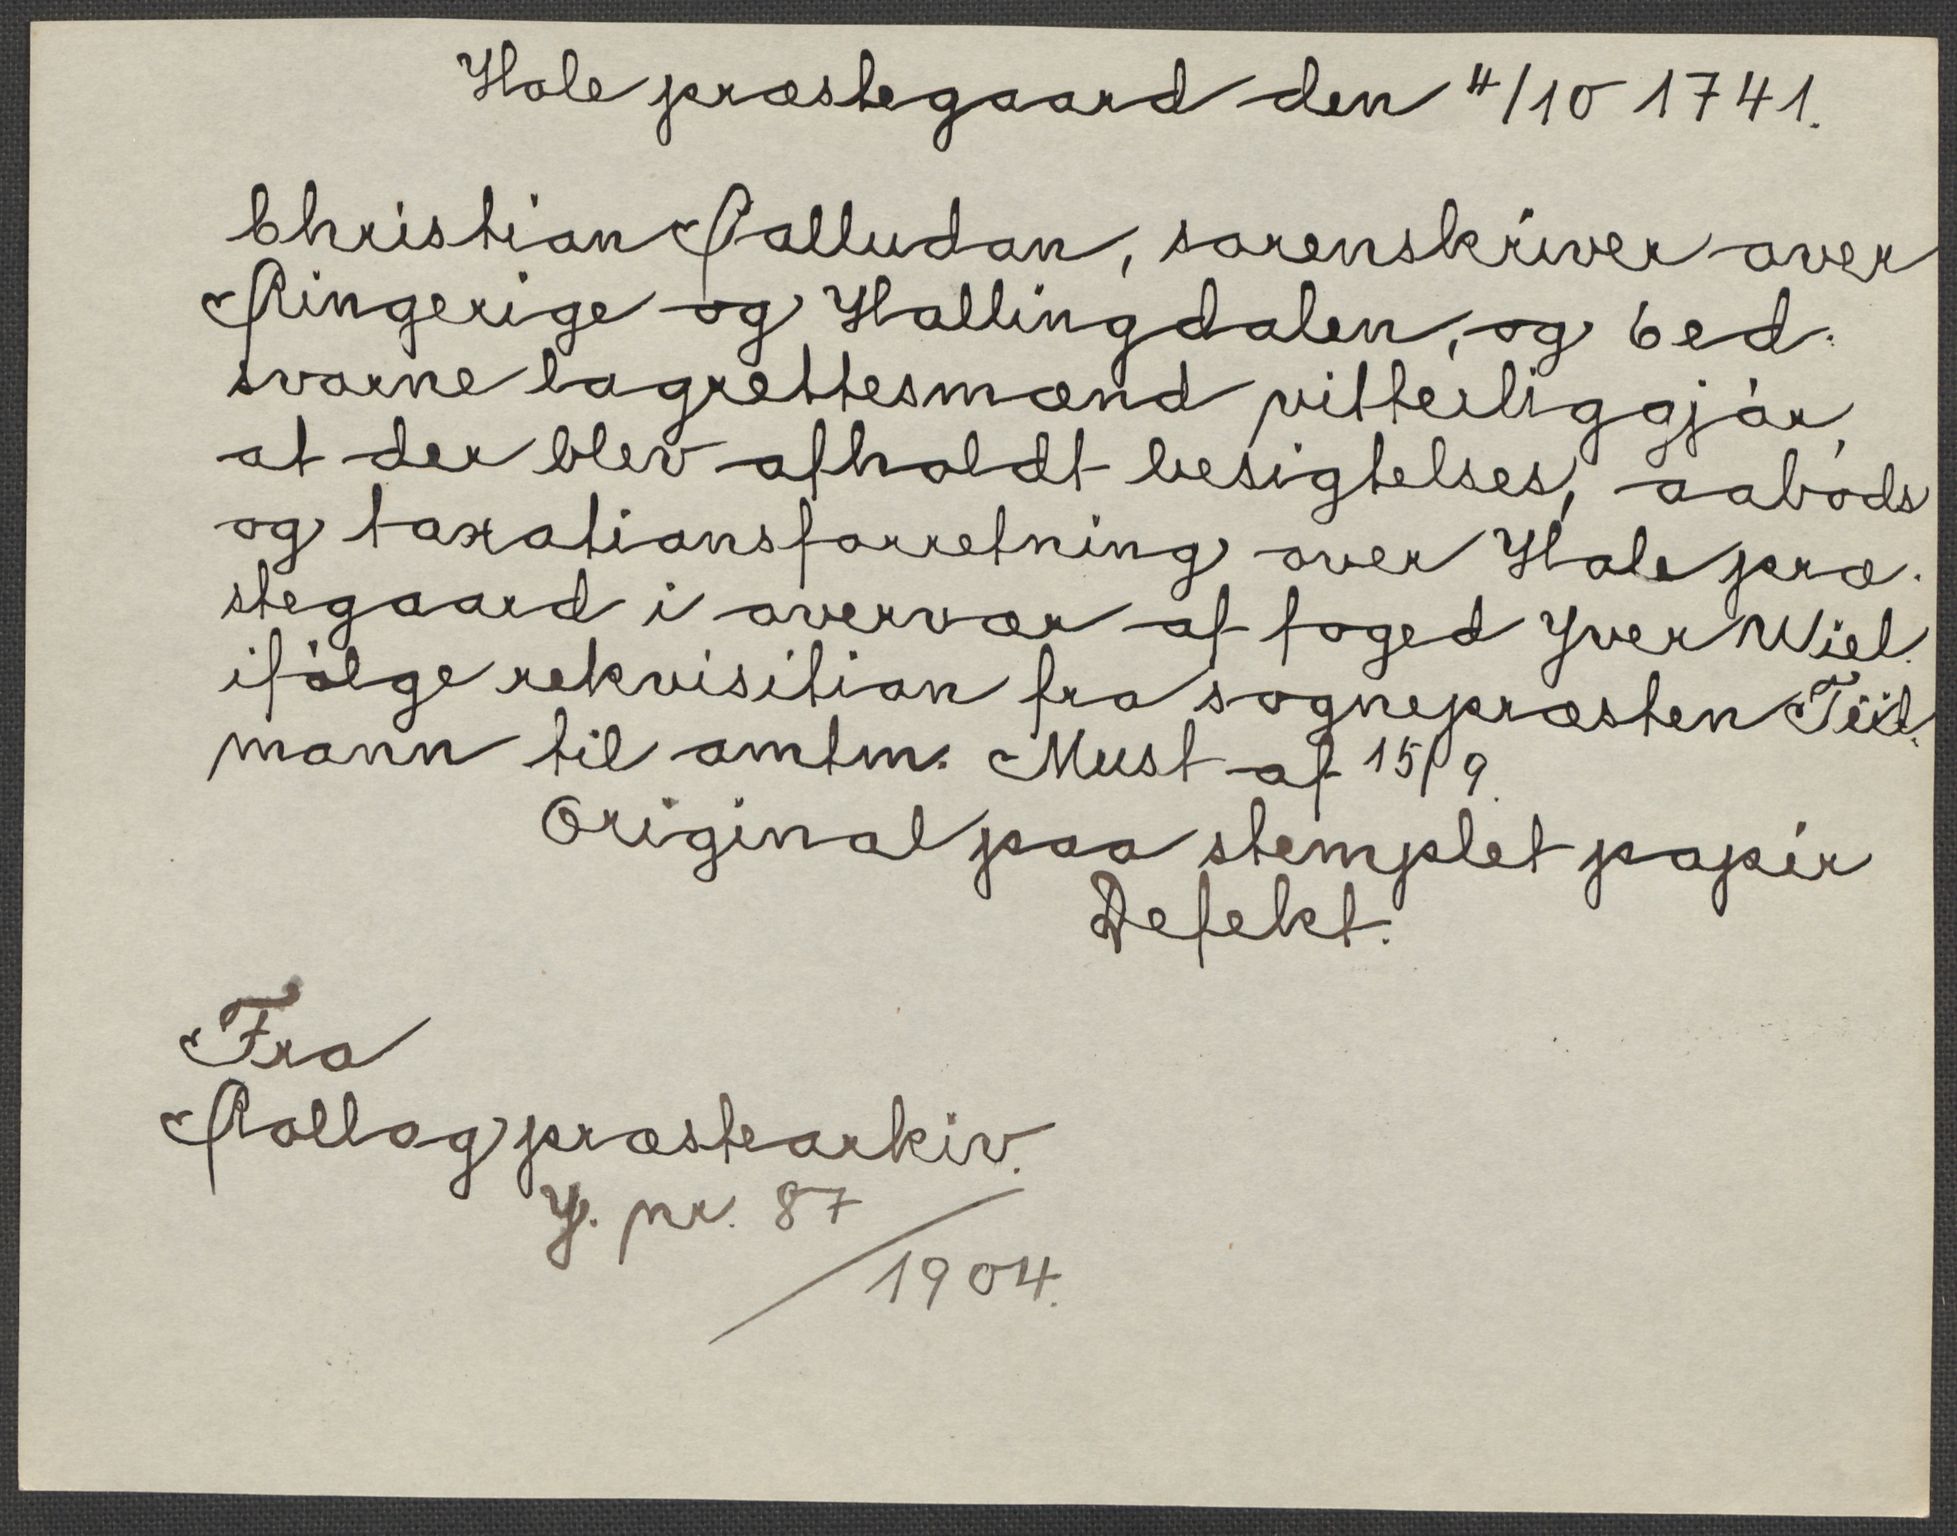 Hole præstegaard den 4/10 1741.
Christian Palludan, sorenskriver over
Ringerige og Hallingdalen, og 6 ed-
svorne lagrettesmænd vitterliggjør,
at der blev afholdt besigtelses, aabods
og taxationsforretning over Hole præ-
stegaard i overvær af foged Yver Wiel
ifølge rekvisition fra sognepræsten Tiil-
mann til amtm. Must af 15/9.
Original paa stemplet papir
Defekt.
Fra
Rollag præstearkiv.
J. nr. 87/1904.